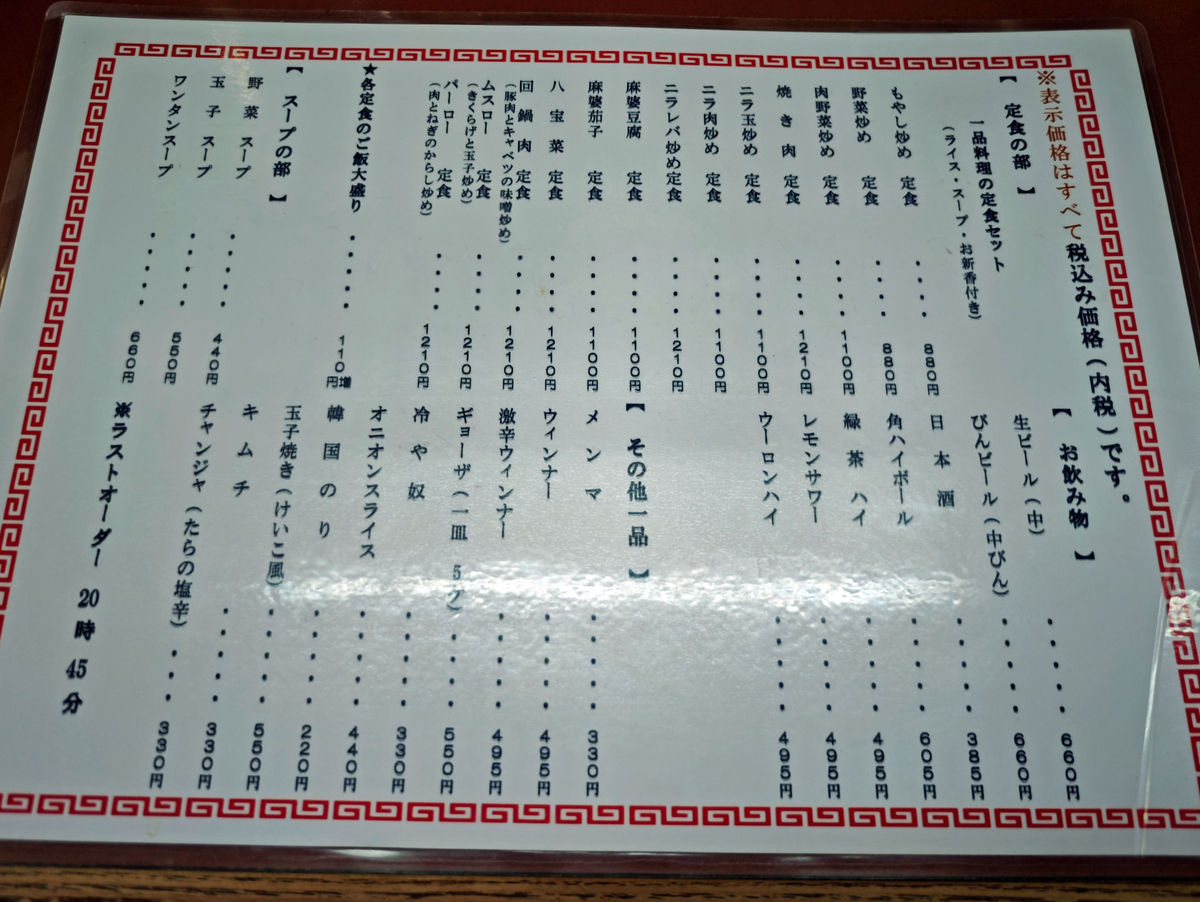 ※表示価格はすべて税込み価格（内税）です。
【 定食の部 】
一品料理の定食セット
（ライス・スープ・お新香付き）
もやし炒め 定食 ・・・・ 880円
野菜炒め 定食 ・・・・ 880円
肉野菜炒め 定食 ・・・・ 1100円
焼き肉 定食 ・・・・ 1210円
ニラ玉炒め 定食 ・・・・ 1100円
ニラ肉炒め 定食 ・・・・ 1100円
ニラレバ炒め定食 ・・・・ 1210円
麻婆豆腐 定食 ・・・・ 1100円
麻婆茄子 定食 ・・・・ 1100円
八宝菜 定食 ・・・・ 1210円
回鍋肉 定食 ・・・・ 1210円
（豚肉とキャベツの味噌炒め）
ムスロー 定食 ・・・・ 1210円
（きくらげと玉子炒め）
パーロー 定食 ・・・・ 1210円
（肉とねぎのからし炒め）
★各定食のご飯大盛り ・・・・・ 110円増
【 スープの部 】
野菜 スープ ・・・・・ 440円
玉子 スープ ・・・・・ 550円
ワンタンスープ ・・・・・ 660円
【 お飲み物 】
生ビール（中） ・・・・・ 660円
びんビール（中びん） ・・・・・ 660円
日本酒 ・・・・・ 385円
角ハイボール ・・・・・ 605円
緑茶ハイ ・・・・・ 495円
レモンサワー ・・・・・ 495円
ウーロンハイ ・・・・・ 495円
【 その他一品 】
メンマ ・・・・・ 330円
ウィンナー ・・・・・ 495円
激辛ウィンナー ・・・・・ 495円
ギョーザ（一皿 5ケ） ・・・・ 550円
冷や奴 ・・・・・ 330円
オニオンスライス ・・・・・ 440円
韓国のり ・・・・・ 220円
玉子焼き（けいこ風） ・・・・・ 550円
キムチ ・・・・・ 330円
チャンジャ（たらの塩辛） ・・・・ 330円
※ラストオーダー 20時45分